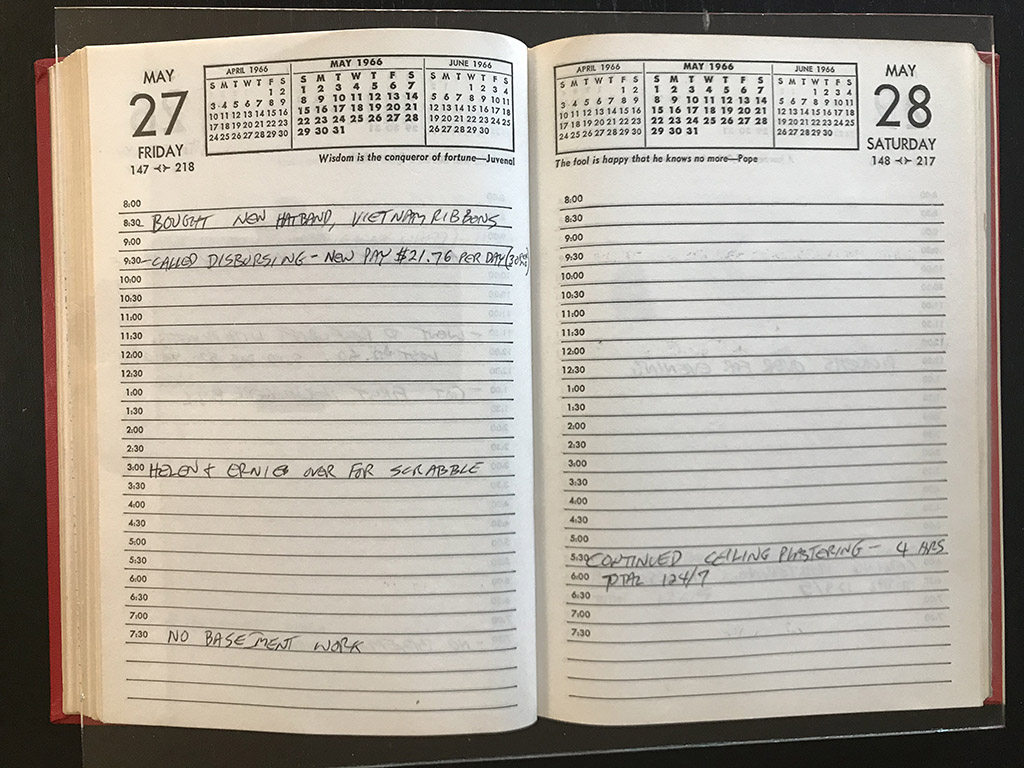 MAY
27
FRIDAY
147 218
APRIL 1966
S M T W T F S
1 2
3 4 5 6 7 8 9
10 11 12 13 14 15 16
17 18 19 20 21 22 23
24 25 26 27 28 29 30
MAY 1966
S M T W T F S
1 2 3 4 5 6 7
8 9 10 11 12 13 14
15 16 17 18 19 20 21
22 23 24 25 26 27 28
29 30 31
JUNE 1966
S M T W T F S
1 2 3 4
5 6 7 8 9 10 11
12 13 14 15 16 17 18
19 20 21 22 23 24 25
26 27 28 29 30
Wisdom is the conqueror of fortune—Juvenal
8:00
8:30 BOUGHT NEW HATBAND, VIETNAM RIBBONS
9:00
9:30 - CALLED DISBURSING - NEW PAY $21.76 PER DAY (30 PER MO)
10:00
10:30
11:00
11:30
12:00
12:30
1:00
1:30
2:00
2:30
3:00 HELEN & ERNIE OVER FOR SCRABBLE
3:30
4:00
4:30
5:00
5:30
6:00
6:30
7:00
7:30 NO BASEMENT WORK
APRIL 1966
S M T W T F S
1 2
3 4 5 6 7 8 9
10 11 12 13 14 15 16
17 18 19 20 21 22 23
24 25 26 27 28 29 30
MAY 1966
S M T W T F S
1 2 3 4 5 6 7
8 9 10 11 12 13 14
15 16 17 18 19 20 21
22 23 24 25 26 27 28
29 30 31
JUNE 1966
S M T W T F S
1 2 3 4
5 6 7 8 9 10 11
12 13 14 15 16 17 18
19 20 21 22 23 24 25
26 27 28 29 30
MAY
28
SATURDAY
148 217
The fool is happy that he knows no more—Pope
8:00
8:30
9:00
9:30
10:00
10:30
11:00
11:30
12:00
12:30
1:00
1:30
2:00
2:30
3:00
3:30
4:00
4:30
5:00
5:30 CONTINUED CEILING PLASTERING - 4 HRS
6:00 TOTAL 124/7
6:30
7:00
7:30